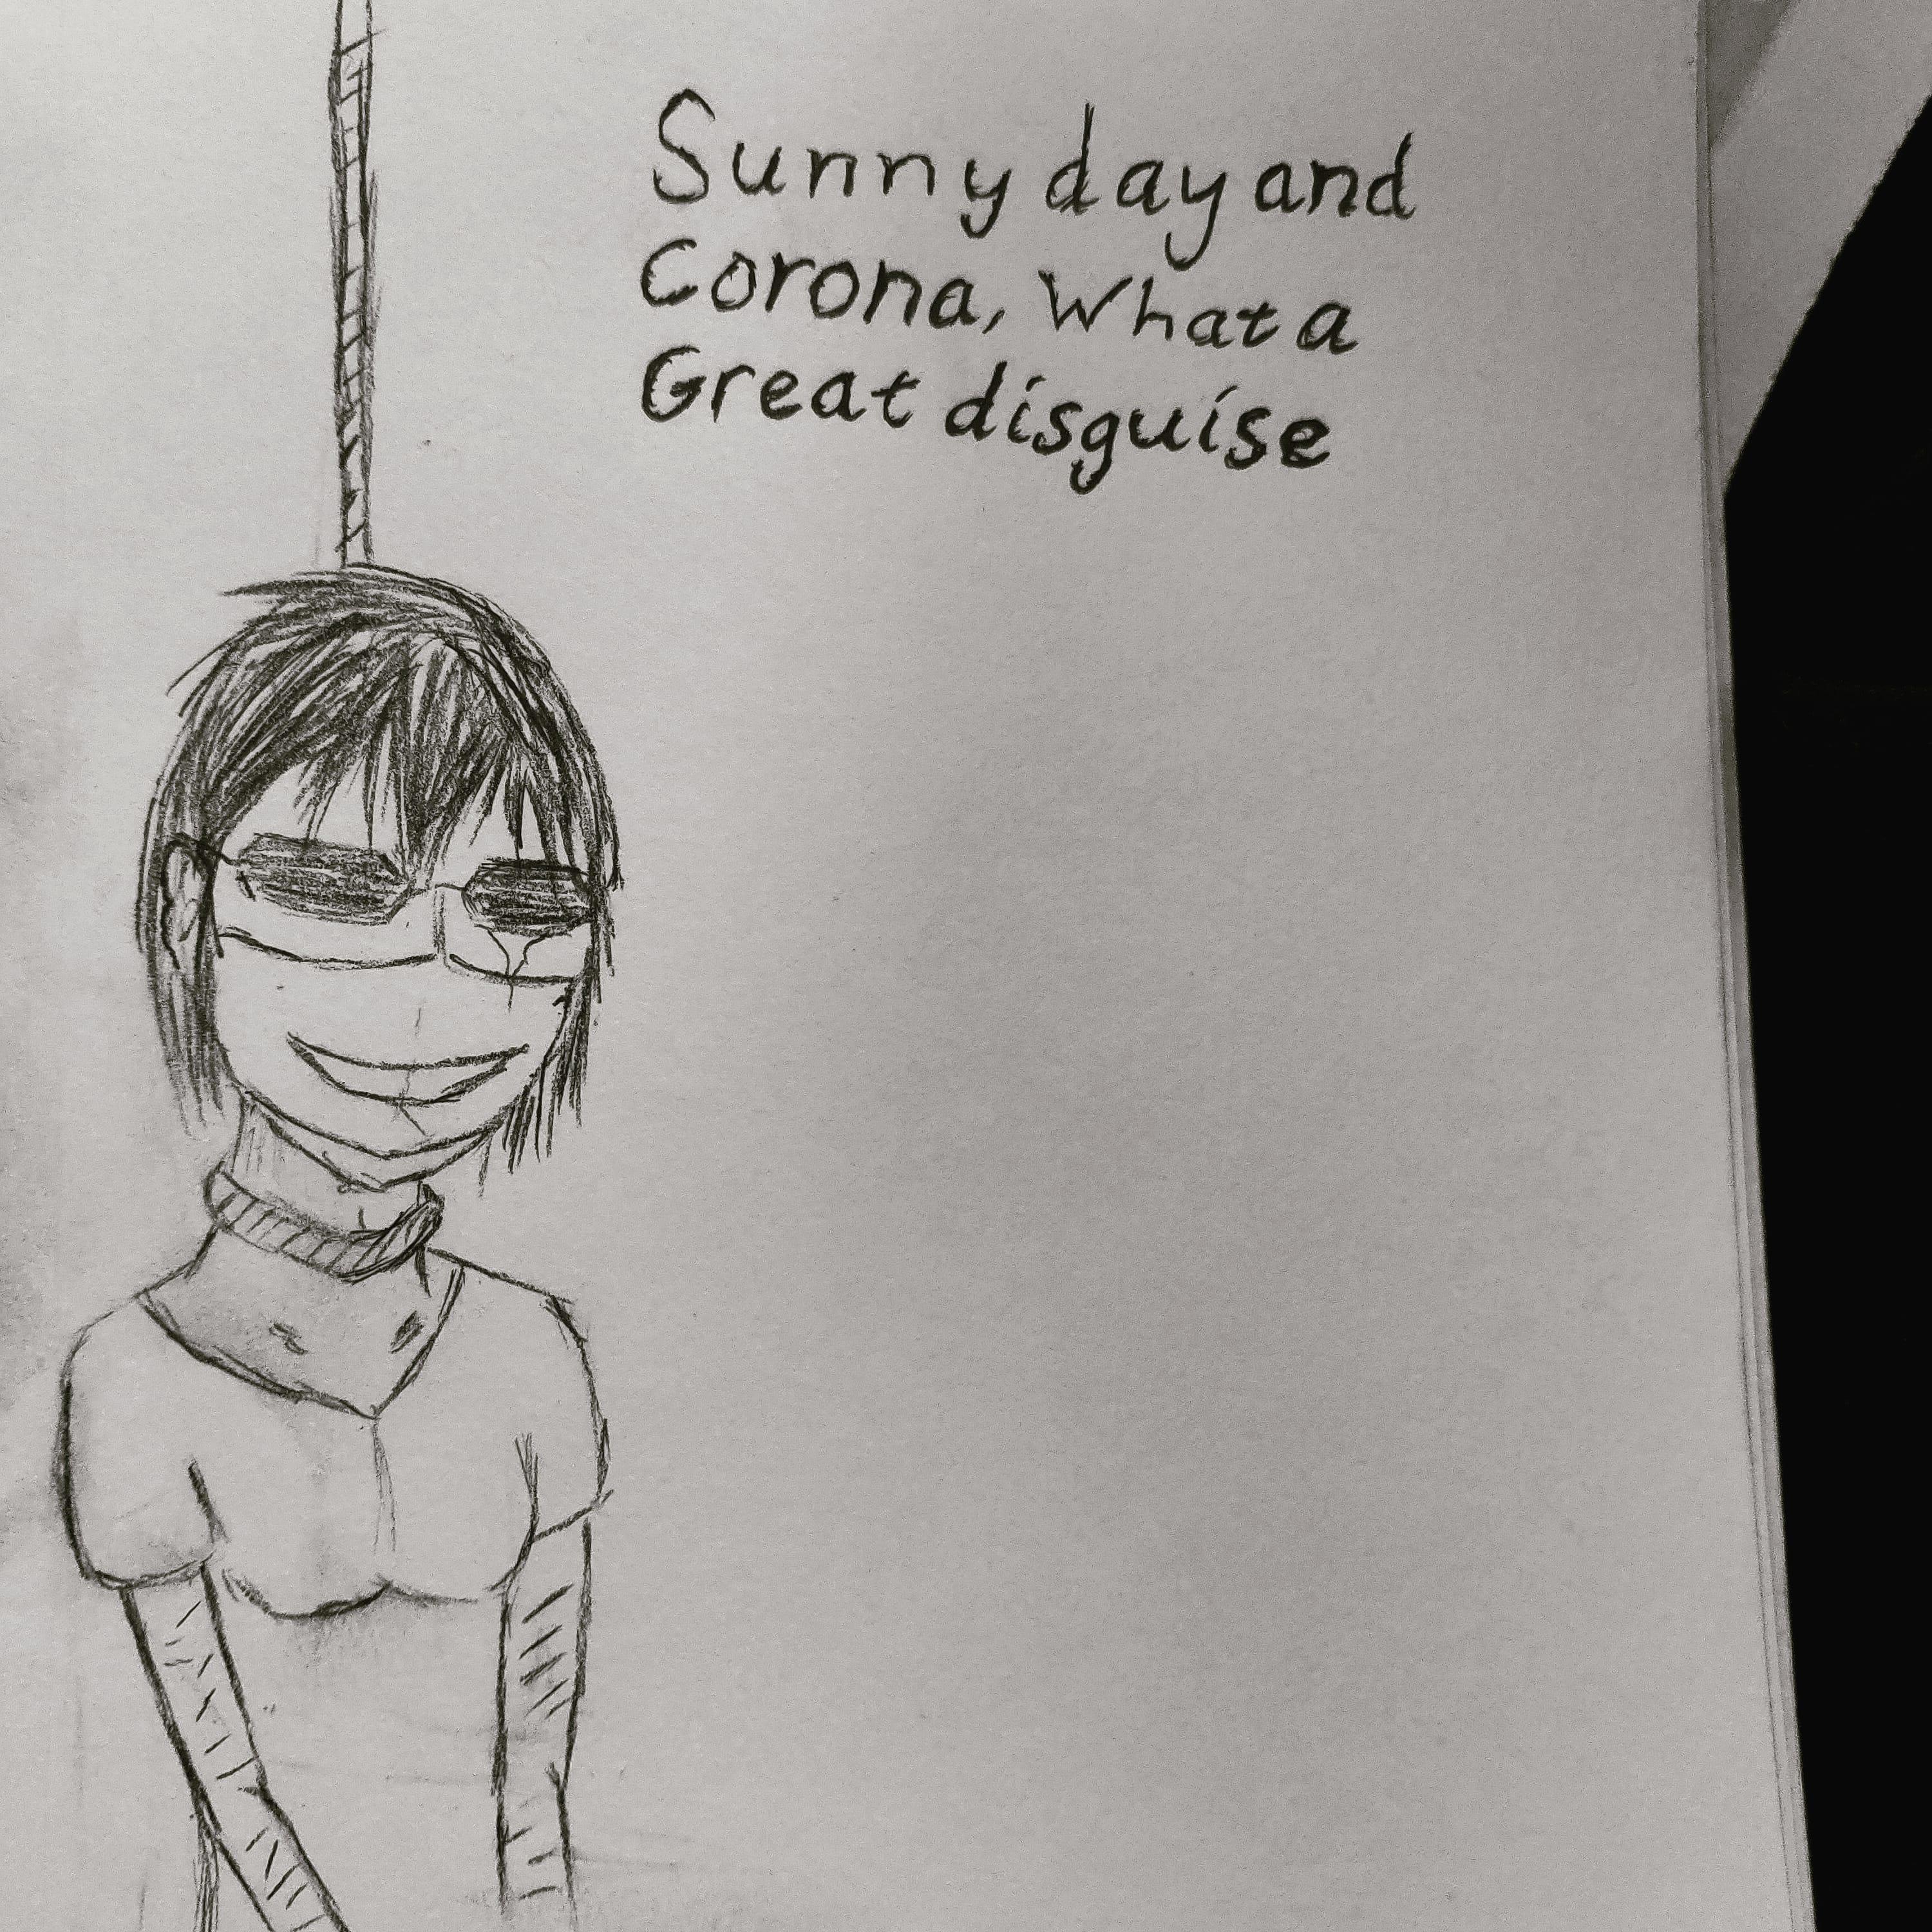 Sunny day and
Corona, What a
Great disguise